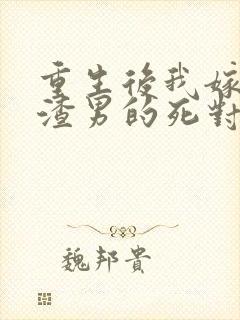 重生後我嫁
渣男的死對
魏邦貴